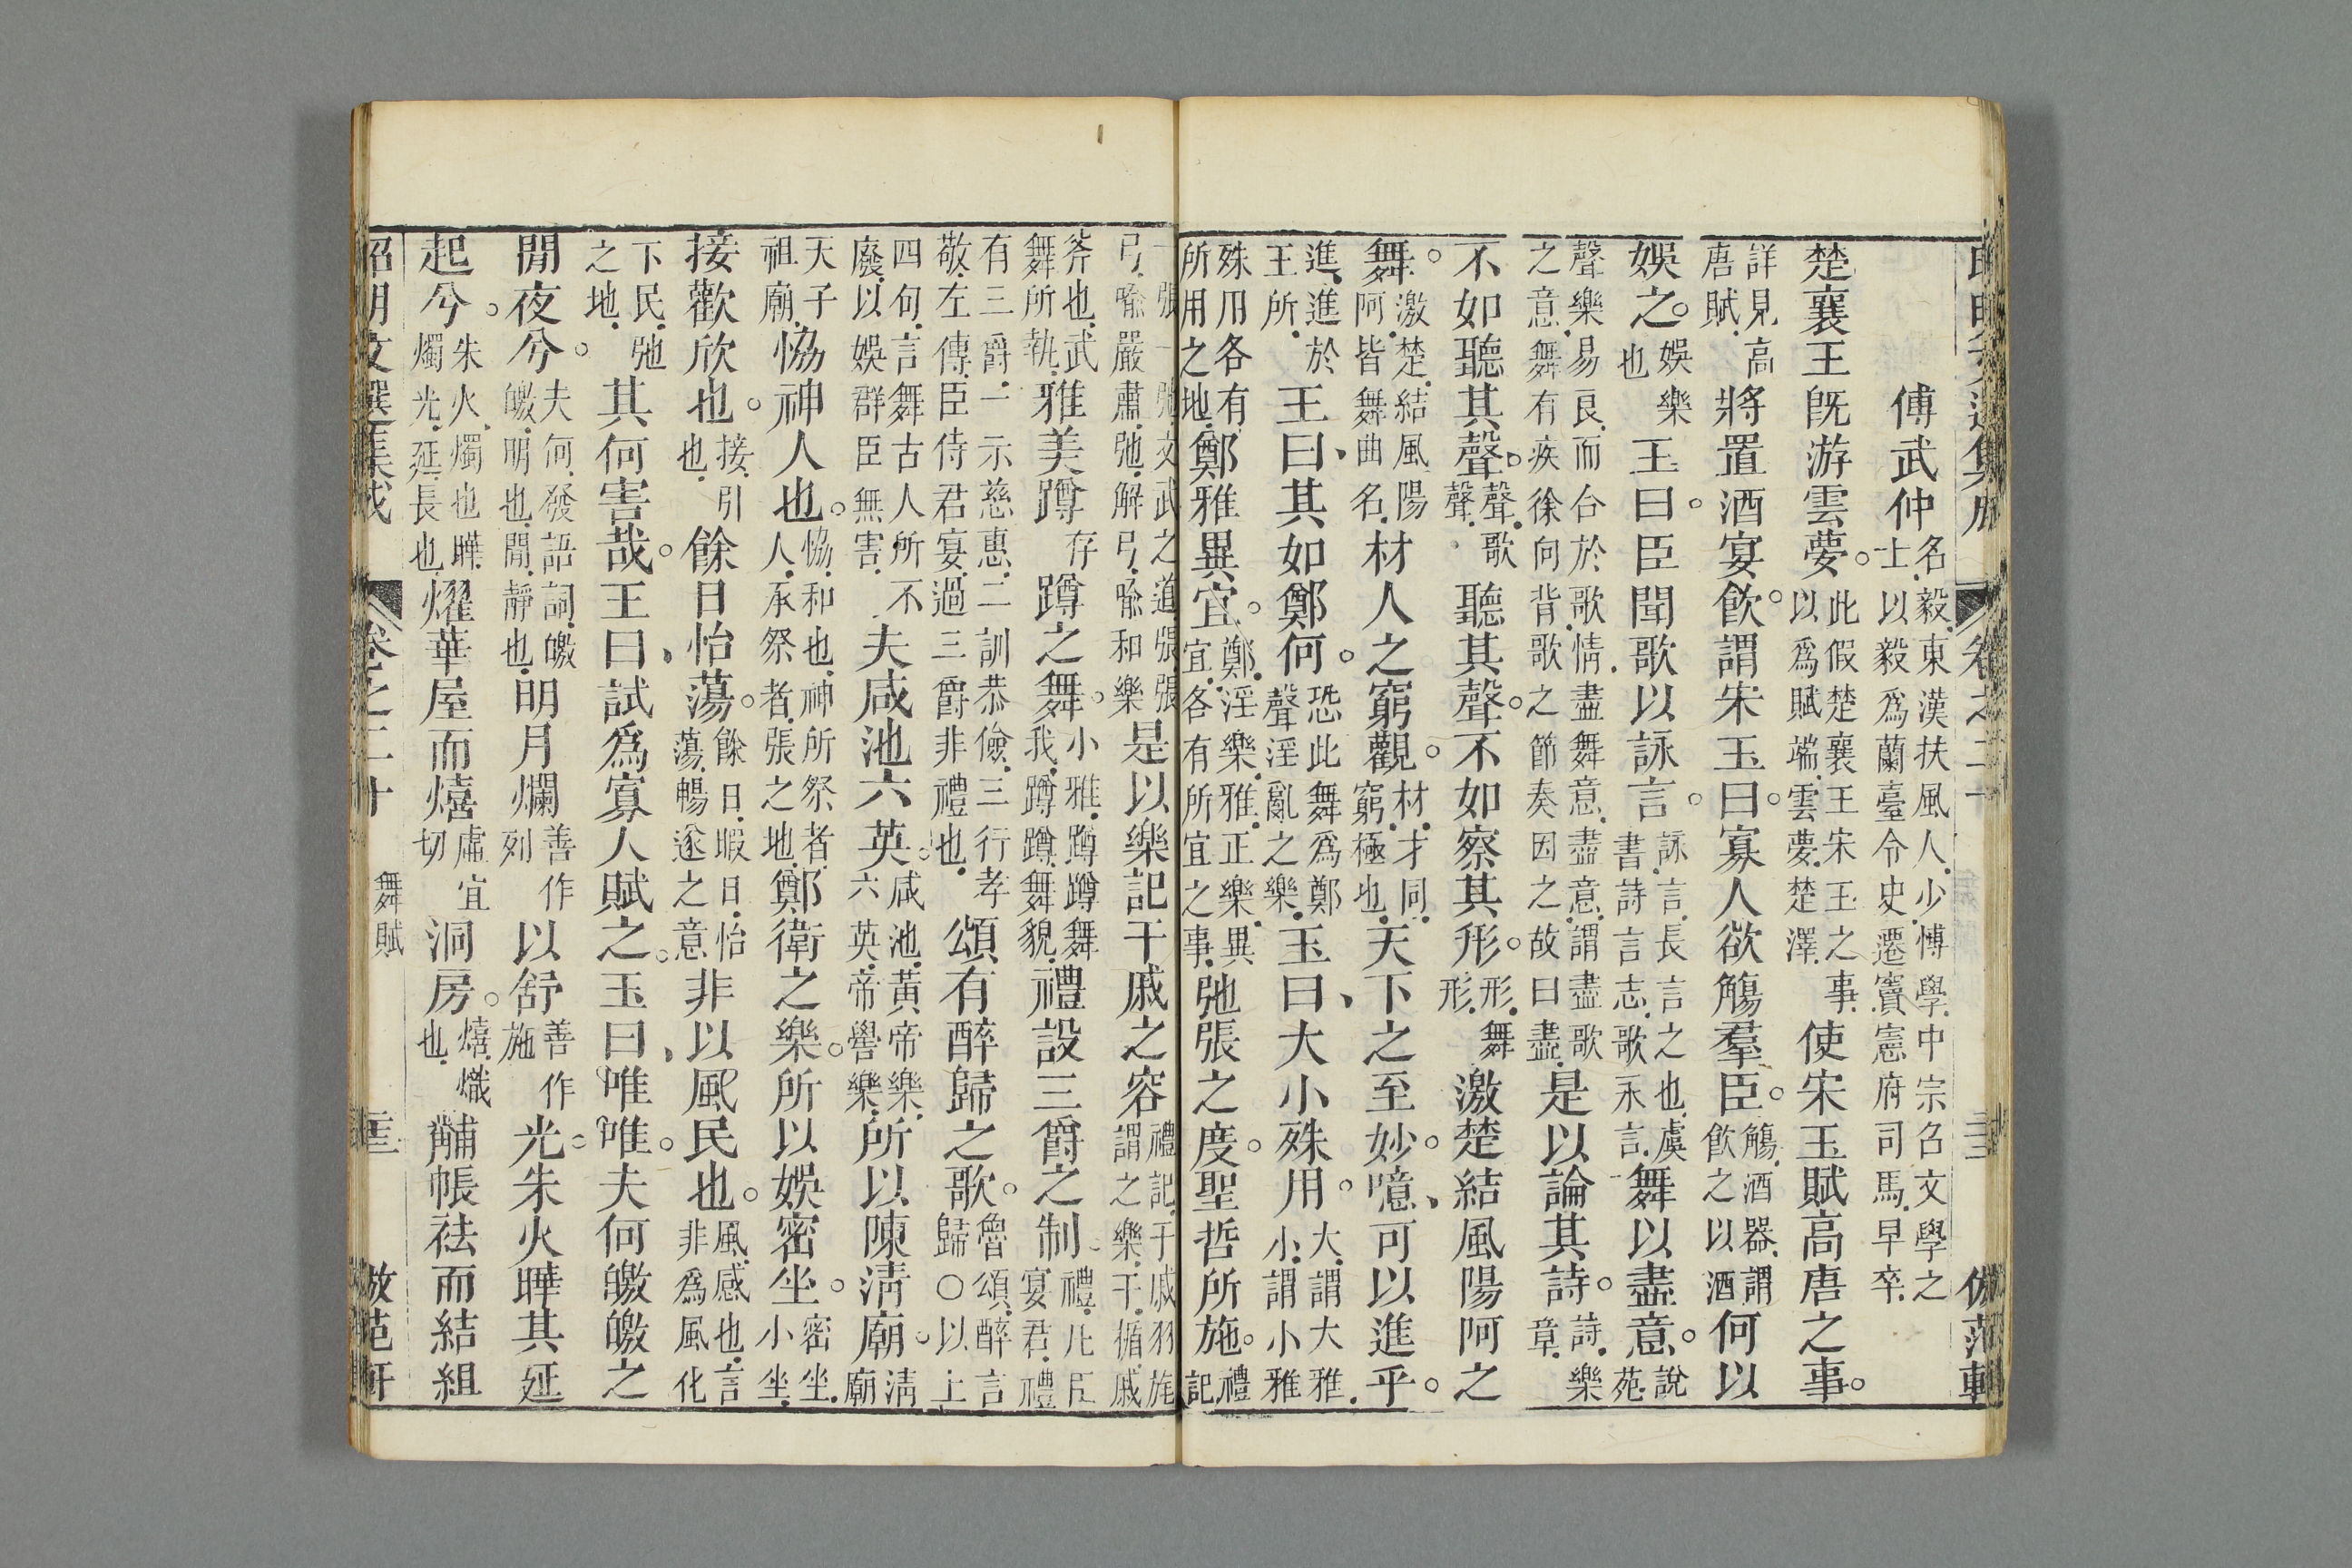 傅武仲名毅.東漢扶風人.少博學.中宗召文學之士.以毅爲蘭臺令史.遷竇憲府司馬.早卒.
楚襄王旣游雲夢。此假楚襄王宋玉之事.以爲賦端.雲夢.楚澤.使宋玉賦高唐之事。
詳見高唐賦.將置酒宴飮。謂宋玉曰。寡人欲觴羣臣。觴.酒器.謂飮之以酒何以
娛之。娛樂也玉曰。臣聞歌以詠言。詠言.長言之也.虞書詩言志.歌永言.舞以盡意。說苑.
聲樂.易良.而合於歌情.盡舞意.盡意.謂盡歌之意.舞有疾徐向背.歌之節奏因之.故曰盡.是以論其詩。詩.樂章.
不如聽其聲。聲.歌聲.聽其聲。不如察其形。形.舞形.激楚結風陽阿之
舞。激楚.結風陽阿.皆舞曲名.材人之窮觀。材.才同.窮.極也.天下之至妙。噫、可以進乎。
進、進於王所.王曰、其如鄭何。恐此舞爲鄭聲淫亂之樂.玉曰、大小殊用。大.謂大雅.小.謂小雅
殊用各有所用之地.鄭雅異宜。鄭.淫樂.雅.正樂.異宜.各有所宜之事.弛張之度。聖哲所施。禮記
一張一弛.文武之道.張張弓.喩嚴肅.弛.解弓.喩和樂是以樂記干戚之容禮記.干戚羽旄謂之樂.干.揗.戚
斧也.武舞所執.雅美蹲存蹲之舞。小雅.蹲蹲舞我.蹲蹲.舞貌.禮設三爵之制。禮.凡臣宴君.禮
有三爵.一示慈惠.二訓恭儉.三行孝敬.左傳.臣侍君宴.過三爵非禮也.頌有醉歸之歌。魯頌.醉言歸〇以上
四句.言舞古人所不廢.以娛群臣無害.夫咸池六英。咸池.黃帝樂.六英.帝嚳樂.所以陳淸廟。淸廟
天子祖廟.恊神人也。恊.和也.神所祭者.人.承祭者.張之地.鄭衛之樂。所以娛密坐。密坐.小坐.
接歡欣也。接.引也.餘日怡蕩。餘日.暇日.怡蕩.暢遂之意非以風民也。風.感也.言非爲風化
下民.弛之地.其何害哉。王曰、試爲寡人賦之。玉曰、唯唯。夫何皦皦之
閒夜兮。夫何.發語詞.皦皦.明也.閒.靜也.明月爛善作列以舒善作施光。朱火曄其延
起兮。朱火.燭也曄.燭光.延.長也燿華屋而熺虛宜切洞房。熺.熾也.黼帳袪而結組
昭明文選集成 卷之二十 舞賦 倣范軒